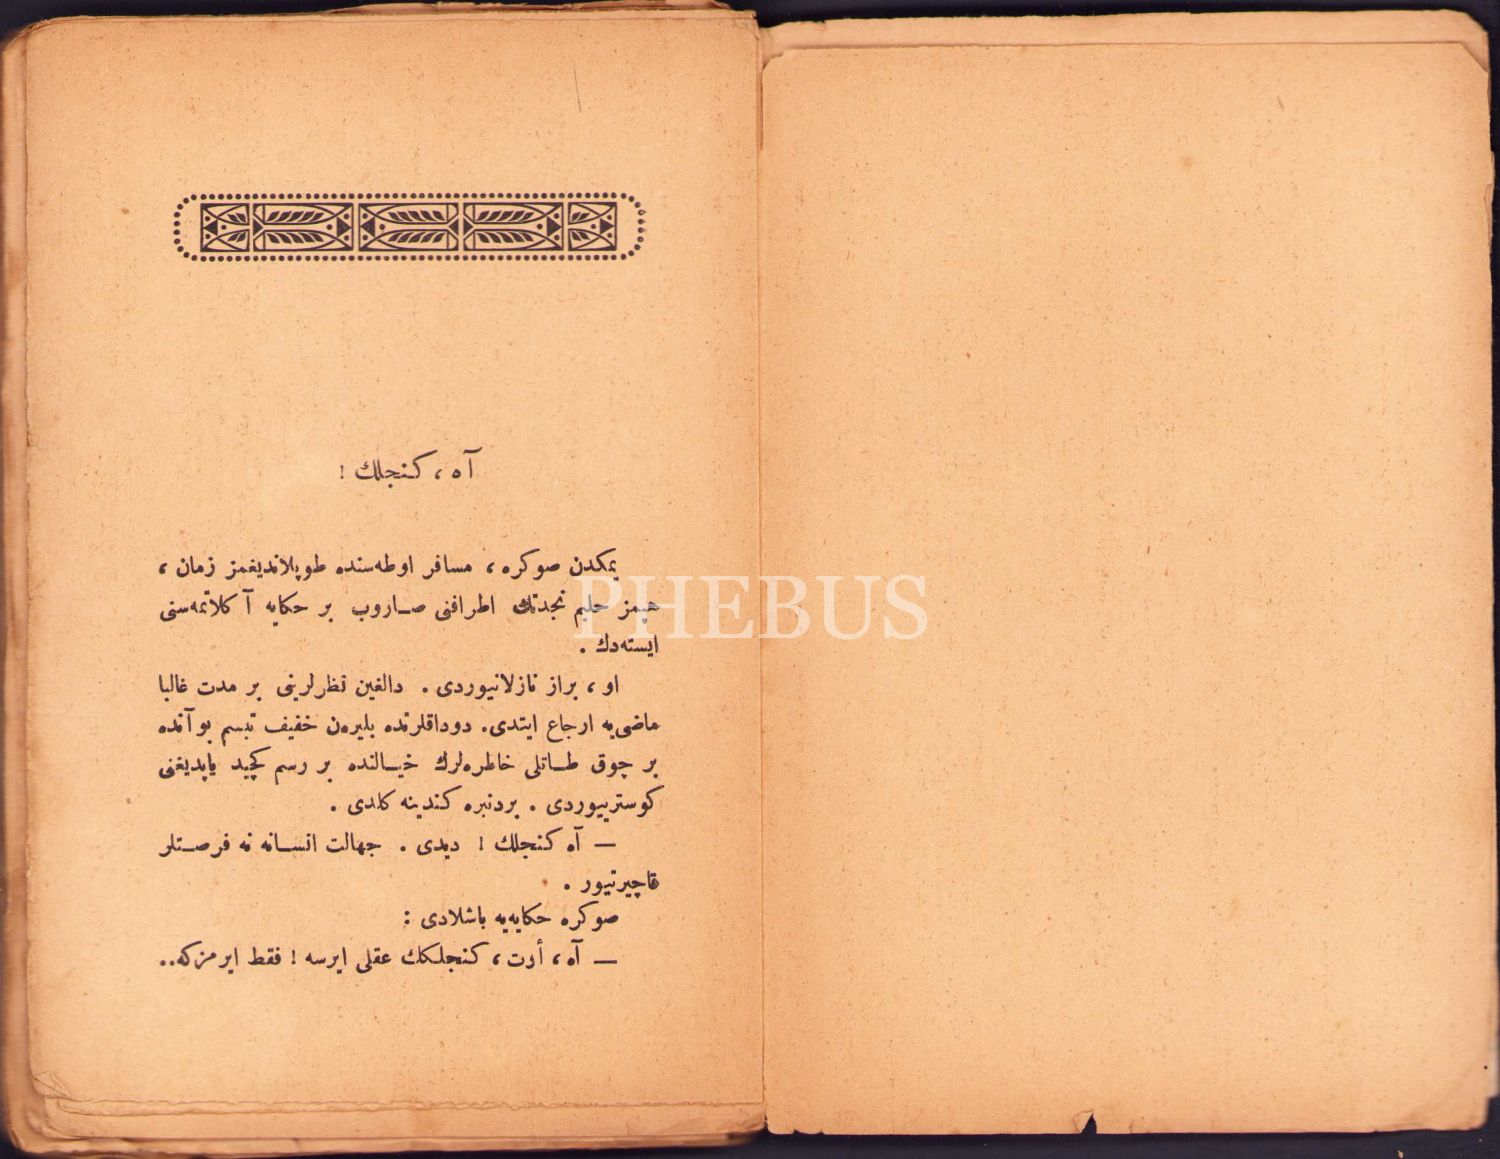 آه ، كنجلك !
يمكدن صوكره ، مسافر اوطه‌سنده طوپلانديغمز زمان ،
هپمز حليم نجدتك اطرافنى صاروب بر حكايه آكلاتمه‌سنى
ايسته‌دك .
او ، براز نازلانيوردى . دالغين نظرلرينى بر مدت غالبا
ماضى‌يه ارجاع ايتدى. دوداقلرنده بليره‌ن خفيف تبسم بو آنده
بر چوق طاتلى خاطره‌لرك خيالنده بر رسم كچيد ياپديغنى
كوستريیوردى . بردنبره كندينه كلدى .
— آه كنجلك ! ديدى . جهالت انسانه نه فرصتلر
قاچيرتيور .
صوكره حكايه‌يه باشلادى :
— آه ، أوت ، كنجلكك عقلى ايرسه ! فقط ايرمزكه..
PHEBUS